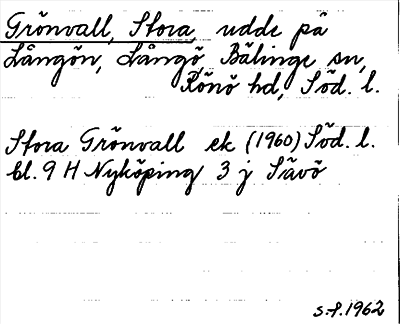 Grönvall, Stora, udde på
Långön, Långö, Bälinge sn,
Rönö hd, Söd. l.
Stora Grönvall ek (1960) Söd. l.
bl. 9 H Nyköping 3 j Sävö
s.f. 1962